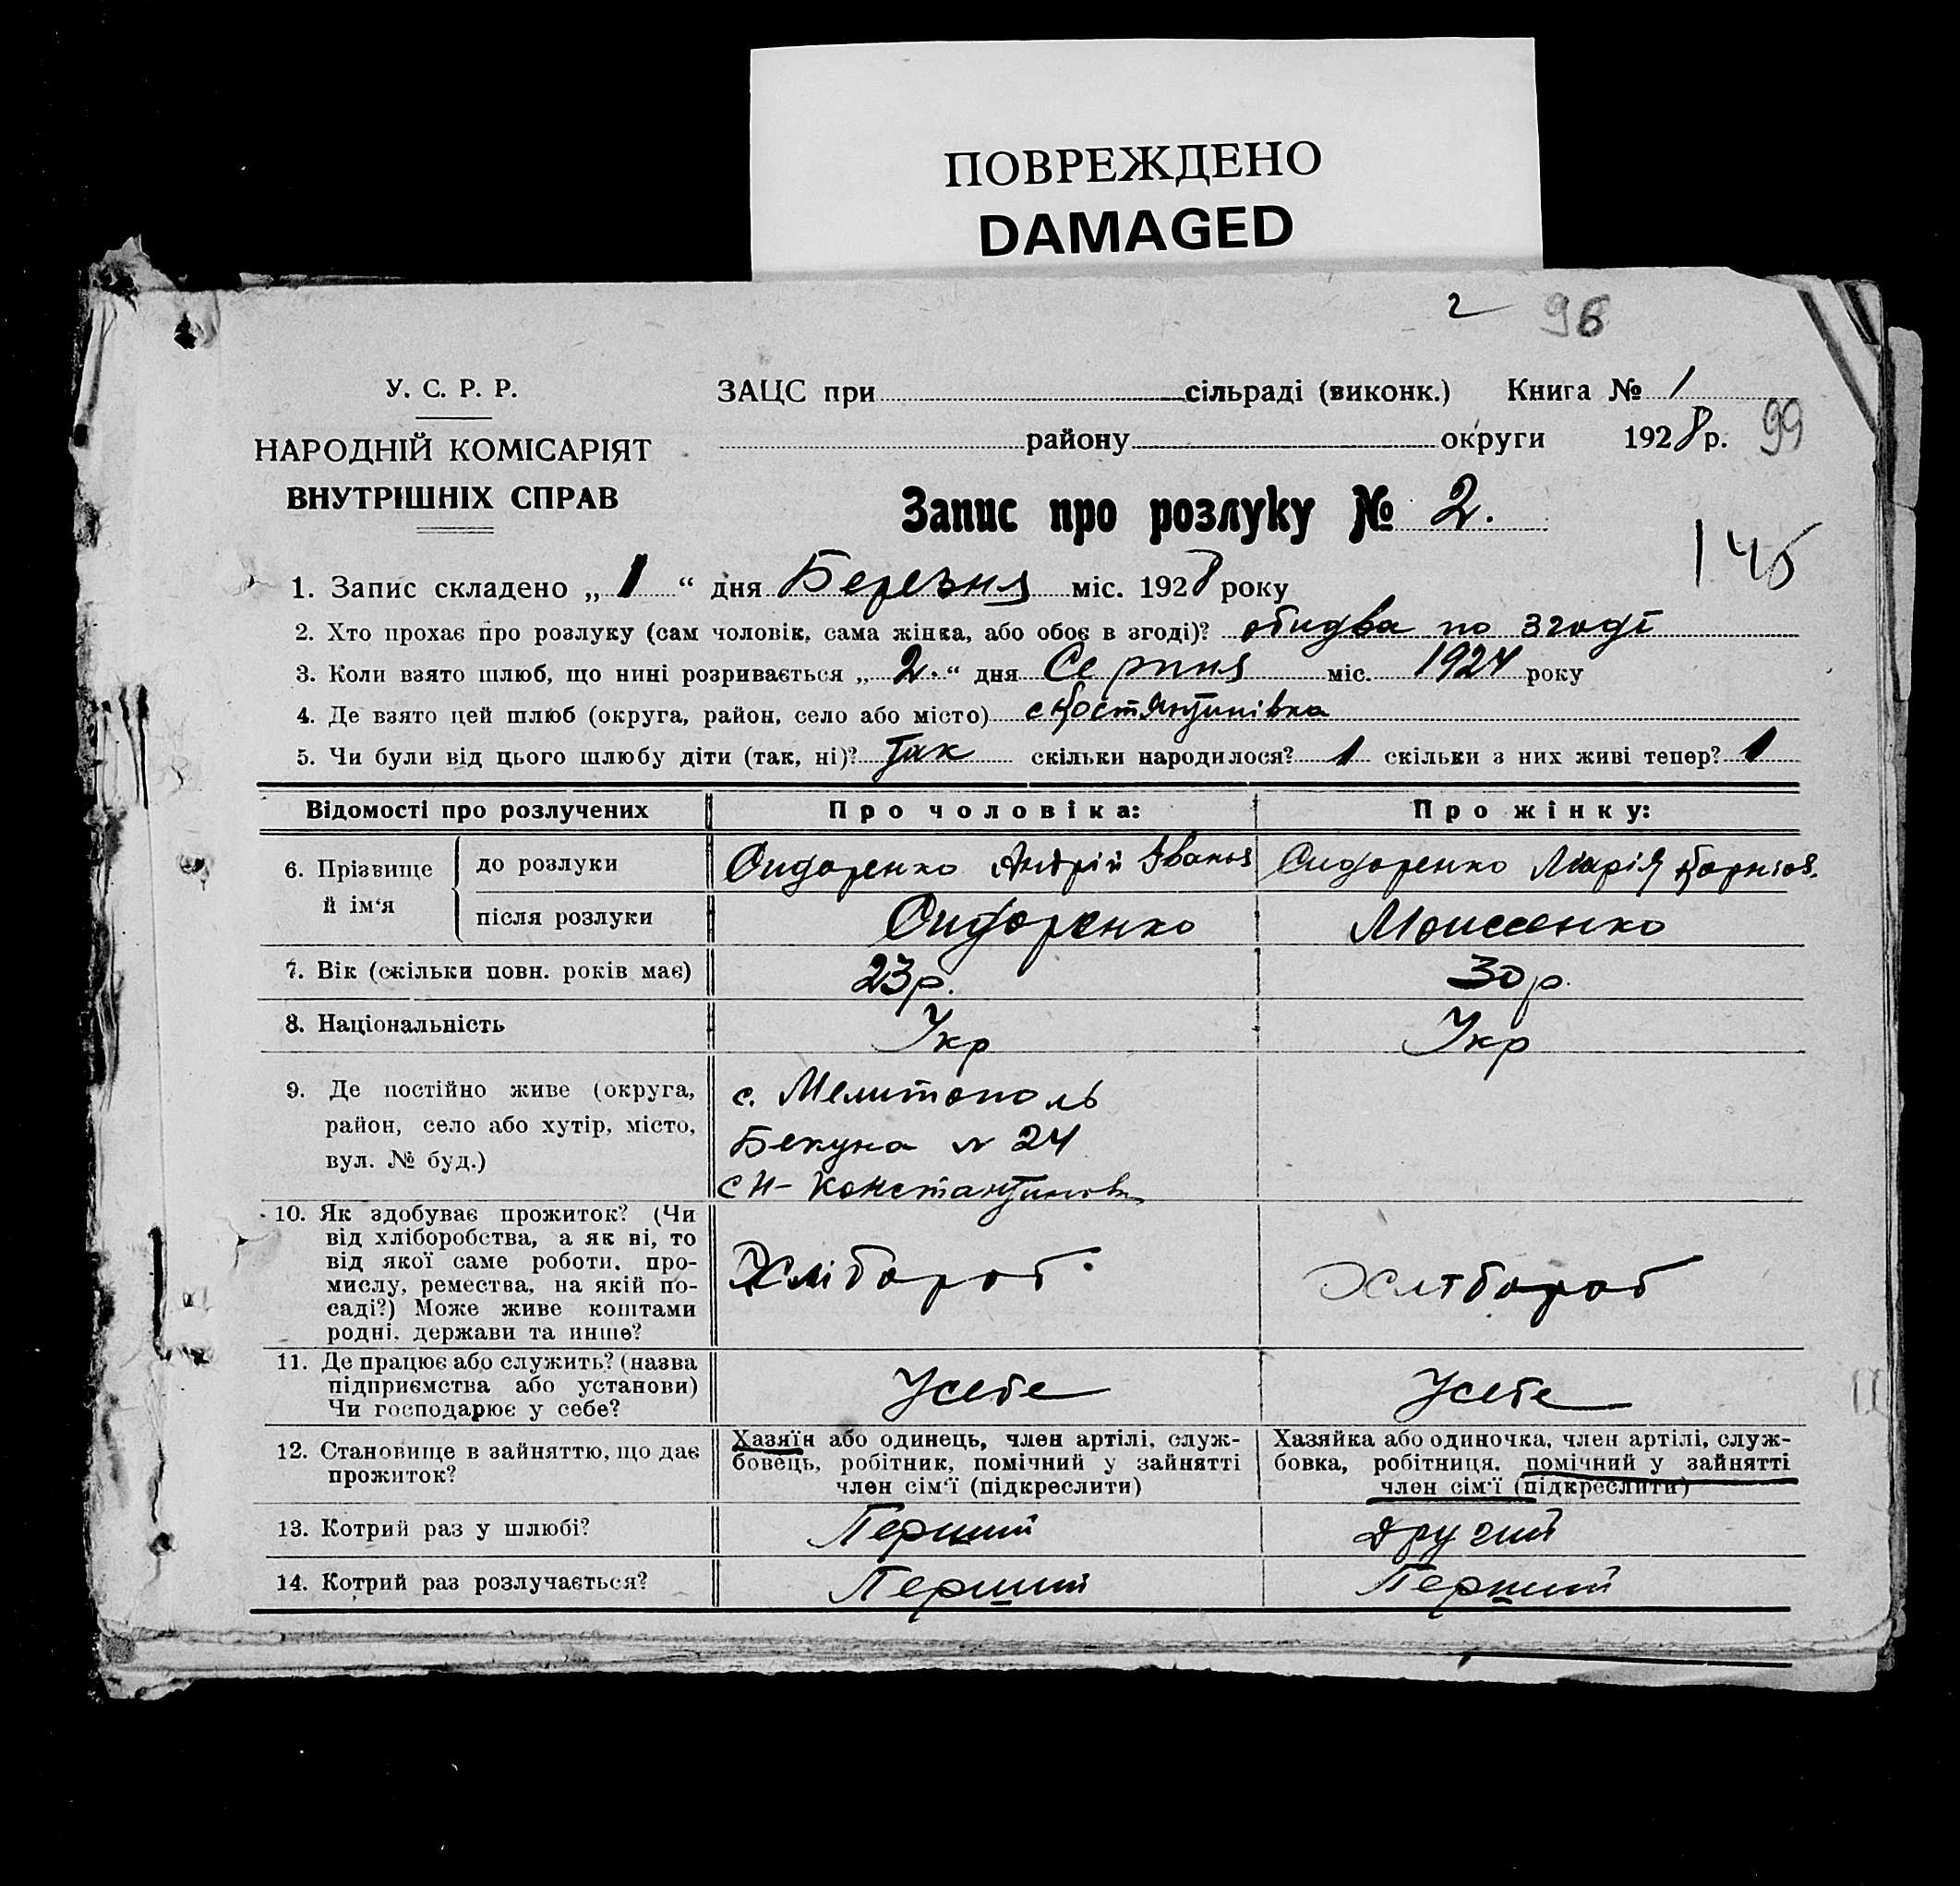 ПОВРЕЖДЕНО
DAMAGED
2 96
У. С. Р. Р.
НАРОДНІЙ КОМІСАРІЯТ
ВНУТРІШНІХ СПРАВ
ЗАЦС при сільраді (виконк.) Книга № 1
району округи 1928 р. 99
Запис про розлуку № 2.
145
1. Запис складено „ 1 “ дня Березня міс. 1928 року
2. Хто прохає про розлуку (сам чоловік, сама жінка, або обоє в згоді)? обидва по згоді
3. Коли взято шлюб, що нині розривається „ 2. “ дня Серпня міс. 1924 року
4. Де взято цей шлюб (округа, район, село або місто) с Костянтинівка
5. Чи були від цього шлюбу діти (так, ні)? Так скільки народилося? 1 скільки з них живі тепер? 1
Відомості про розлучених Про чоловіка: Про жінку:
6. Прізвище й ім‘я до розлуки Сидоренко Андрій Сидоренко Марія
після розлуки Сидоренко Моисеенко
7. Вік (скільки повн. років має) 23р. 30р.
8. Національність Укр Укр
9. Де постійно живе (округа,
район, село або хутір, місто,
вул. № буд.)
с. Мелитополь
№ 24
с Н-
10. Як здобуває прожиток? (Чи
від хліборобства, а як ні, то
від якої саме роботи, про-
мислу, ремества, на якій по-
саді?) Може живе коштами
родні, держави та инше?
Хлібороб Хлібороб
11. Де працює або служить? (назва
підприємства або установи)
Чи господарює у себе?
Усебе Усебе
12. Становище в зайняттю, що дає
прожиток?
Хазяїн або одинець, член артілі, служ-
бовець, робітник, помічний у зайнятті
член сім‘ї (підкреслити)
Хазяйка або одиночка, член артілі, служ-
бовка, робітниця, помічний у зайнятті
член сім‘ї (підкреслити)
13. Котрий раз у шлюбі? Перший Другий
14. Котрий раз розлучається? Перший Перший